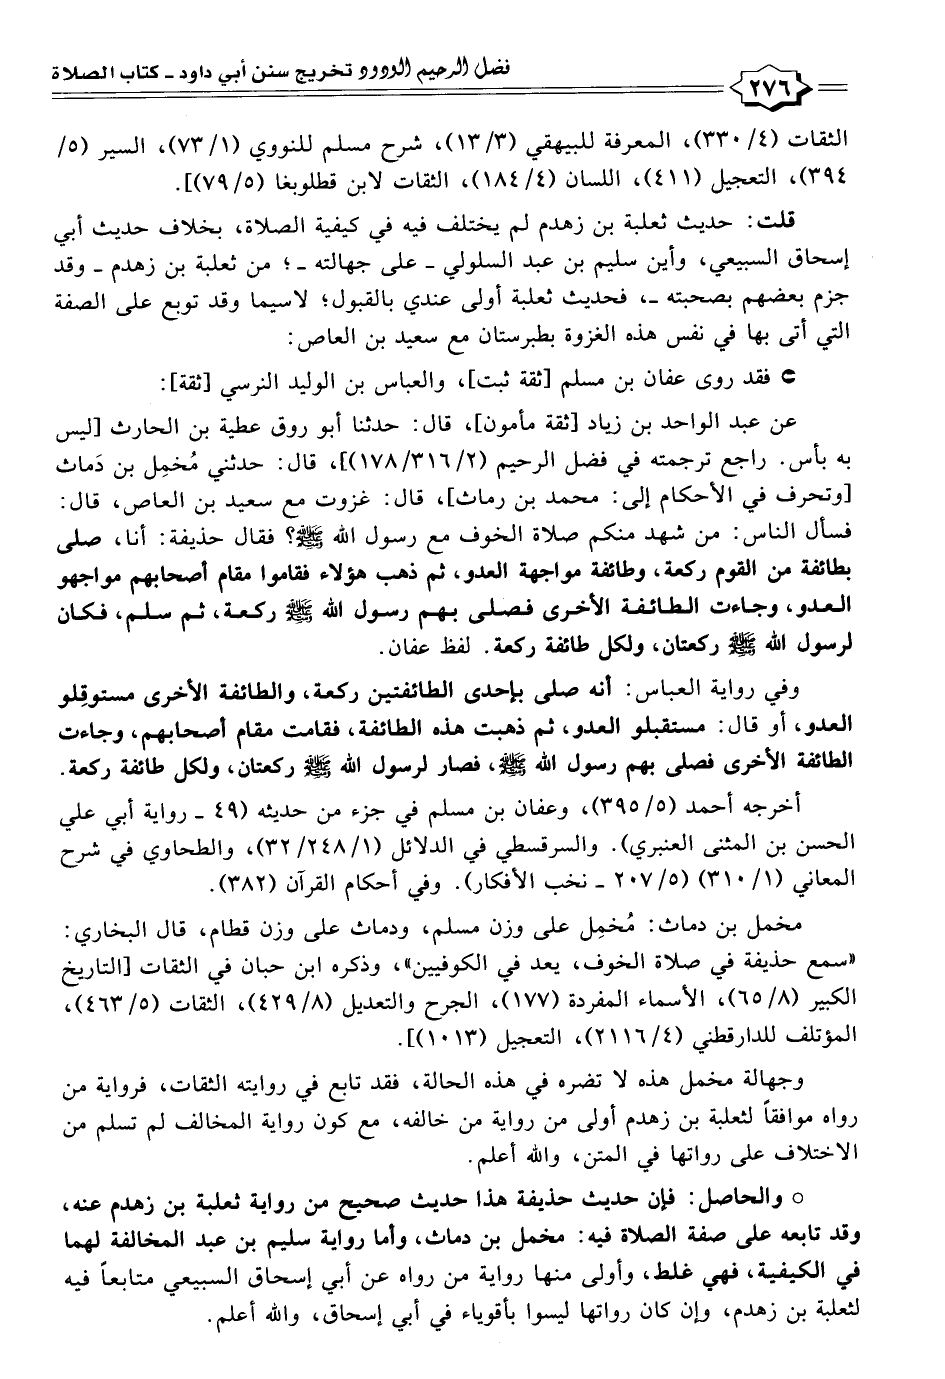 فضل الرحيم الودود تخريج سنن أبي داود ـ كتاب الصلاة
٢٧٦
الثقات (٤/ ٣٣٠)، المعرفة للبيهقي (٣/ ١٣)، شرح مسلم للنووي (١/ ٧٣)، السير (٥/
٣٩٤)، التعجيل (٤١١)، اللسان (٤/ ١٨٤)، الثقات لابن قطلوبغا (٥/ ٧٩)].
قلت: حديث ثعلبة بن زهدم لم يختلف فيه في كيفية الصلاة، بخلاف حديث أبي
إسحاق السبيعي، وأين سليم بن عبد السلولي ـ على جهالته ـ؛ من ثعلبة بن زهدم ـ وقد
جزم بعضهم بصحبته ـ، فحديث ثعلبة أولى عندي بالقبول؛ لاسيما وقد توبع على الصفة
التي أتى بها في نفس هذه الغزوة بطبرستان مع سعيد بن العاص:
⊃ فقد روى عفان بن مسلم [ثقة ثبت]، والعباس بن الوليد النرسي [ثقة]:
عن عبد الواحد بن زياد [ثقة مأمون]، قال: حدثنا أبو روق عطية بن الحارث [ليس
به بأس. راجع ترجمته في فضل الرحيم (٢/ ٣١٦/ ١٧٨)]، قال: حدثني مُخمِل بن دَماث
[وتحرف في الأحكام إلى: محمد بن رماث]، قال: غزوت مع سعيد بن العاص، قال:
فسأل الناس: من شهد منكم صلاة الخوف مع رسول الله ﷺ؟ فقال حذيفة: أنا، صلى
بطائفة من القوم ركعة، وطائفة مواجهة العدو، ثم ذهب هؤلاء فقاموا مقام أصحابهم مواجهو
العدو، وجاءت الطائفة الأخرى فصلى بهم رسول الله ﷺ ركعة، ثم سلم، فكان
لرسول الله ﷺ ركعتان، ولكل طائفة ركعة. لفظ عفان.
وفي رواية العباس: أنه صلى بإحدى الطائفتين ركعة، والطائفة الأخرى مستوقِلو
العدو، أو قال: مستقبلو العدو، ثم ذهبت هذه الطائفة، فقامت مقام أصحابهم، وجاءت
الطائفة الأخرى فصلى بهم رسول الله ﷺ، فصار لرسول الله ﷺ ركعتان، ولكل طائفة ركعة.
أخرجه أحمد (٥/ ٣٩٥)، وعفان بن مسلم في جزء من حديثه (٤٩ ـ رواية أبي علي
الحسن بن المثنى العنبري). والسرقسطي في الدلائل (١/ ٢٤٨/ ٣٢)، والطحاوي في شرح
المعاني (١/ ٣١٠) (٥/ ٢٠٧ ـ نخب الأفكار). وفي أحكام القرآن (٣٨٢).
مخمل بن دماث: مُخمِل على وزن مسلم، ودماث على وزن قطام، قال البخاري:
«سمع حذيفة في صلاة الخوف، يعد في الكوفيين»، وذكره ابن حبان في الثقات [التاريخ
الكبير (٨/ ٦٥)، الأسماء المفردة (١٧٧)، الجرح والتعديل (٨/ ٤٢٩)، الثقات (٥/ ٤٦٣)،
المؤتلف للدارقطني (٤/ ٢١١٦)، التعجيل (١٠١٣)].
وجهالة مخمل هذه لا تضره في هذه الحالة، فقد تابع في روايته الثقات، فرواية من
رواه موافقاً لثعلبة بن زهدم أولى من رواية من خالفه، مع كون رواية المخالف لم تسلم من
الاختلاف على رواتها في المتن، والله أعلم.
○ والحاصل: فإن حديث حذيفة هذا حديث صحيح من رواية ثعلبة بن زهدم عنه،
وقد تابعه على صفة الصلاة فيه: مخمل بن دماث، وأما رواية سليم بن عبد المخالفة لهما
في الكيفية، فهي غلط، وأولى منها رواية من رواه عن أبي إسحاق السبيعي متابعاً فيه
لثعلبة بن زهدم، وإن كان رواتها ليسوا بأقوياء في أبي إسحاق، والله أعلم.